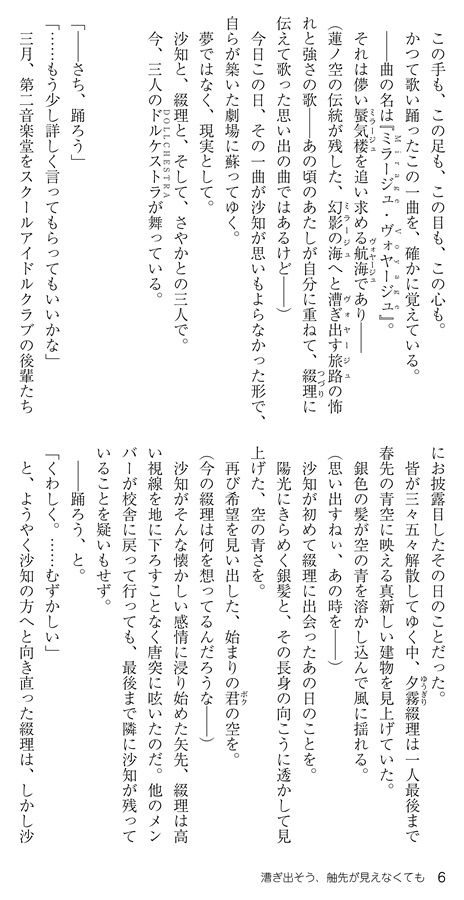 この手も、この足も、この目も、この心も。
かつて歌い踊ったこの一曲を、確かに覚えている。
――曲の名は『ミラージュ・ヴォヤージュ』。
Mirage Voyage
それは儚い蜃気楼を追い求める航海であり――
ミラージュ ヴォヤージュ
(蓮ノ空の伝統が残した、幻影の海へと漕ぎ出す旅路の怖
ミラージュ ヴォヤージュ
れと強さの歌――あの頃のあたしが自分に重ねて、綴理に
つづり
伝えて歌った思い出の曲ではあるけど――)
今日この日、その一曲が沙知が思いもよらなかった形で、
自らが築いた劇場に蘇ってゆく。
夢ではなく、現実として。
沙知と、綴理と、そして、さやかとの三人で。
今、三人のドルケストラが舞っている。
DOLLCHESTRA
「――さち、踊ろう」
「……もう少し詳しく言ってもらってもいいかな」
三月、第二音楽堂をスクールアイドルクラブの後輩たち
にお披露目したその日のことだった。
皆が三々五々解散してゆく中、夕霧綴理は一人最後まで
ゆうぎり
春先の青空に映える真新しい建物を見上げていた。
銀色の髪が空の青を溶かし込んで風に揺れる。
(思い出すねぃ、あの時を――)
沙知が初めて綴理に出会ったあの日のことを。
陽光にきらめく銀髪と、その長身の向こうに透かして見
上げた、空の青さを。
再び希望を見い出した、始まりの君の空を。
ボク
(今の綴理は何を想ってるんだろうな――)
沙知がそんな懐かしい感情に浸り始めた矢先、綴理は高
い視線を地に下ろすことなく唐突に呟いたのだ。他のメン
バーが校舎に戻って行っても、最後まで隣に沙知が残って
いることを疑いもせず。
――踊ろう、と。
「くわしく。……むずかしい」
と、ようやく沙知の方へと向き直った綴理は、しかし沙
漕ぎ出そう、舳先が見えなくても 6